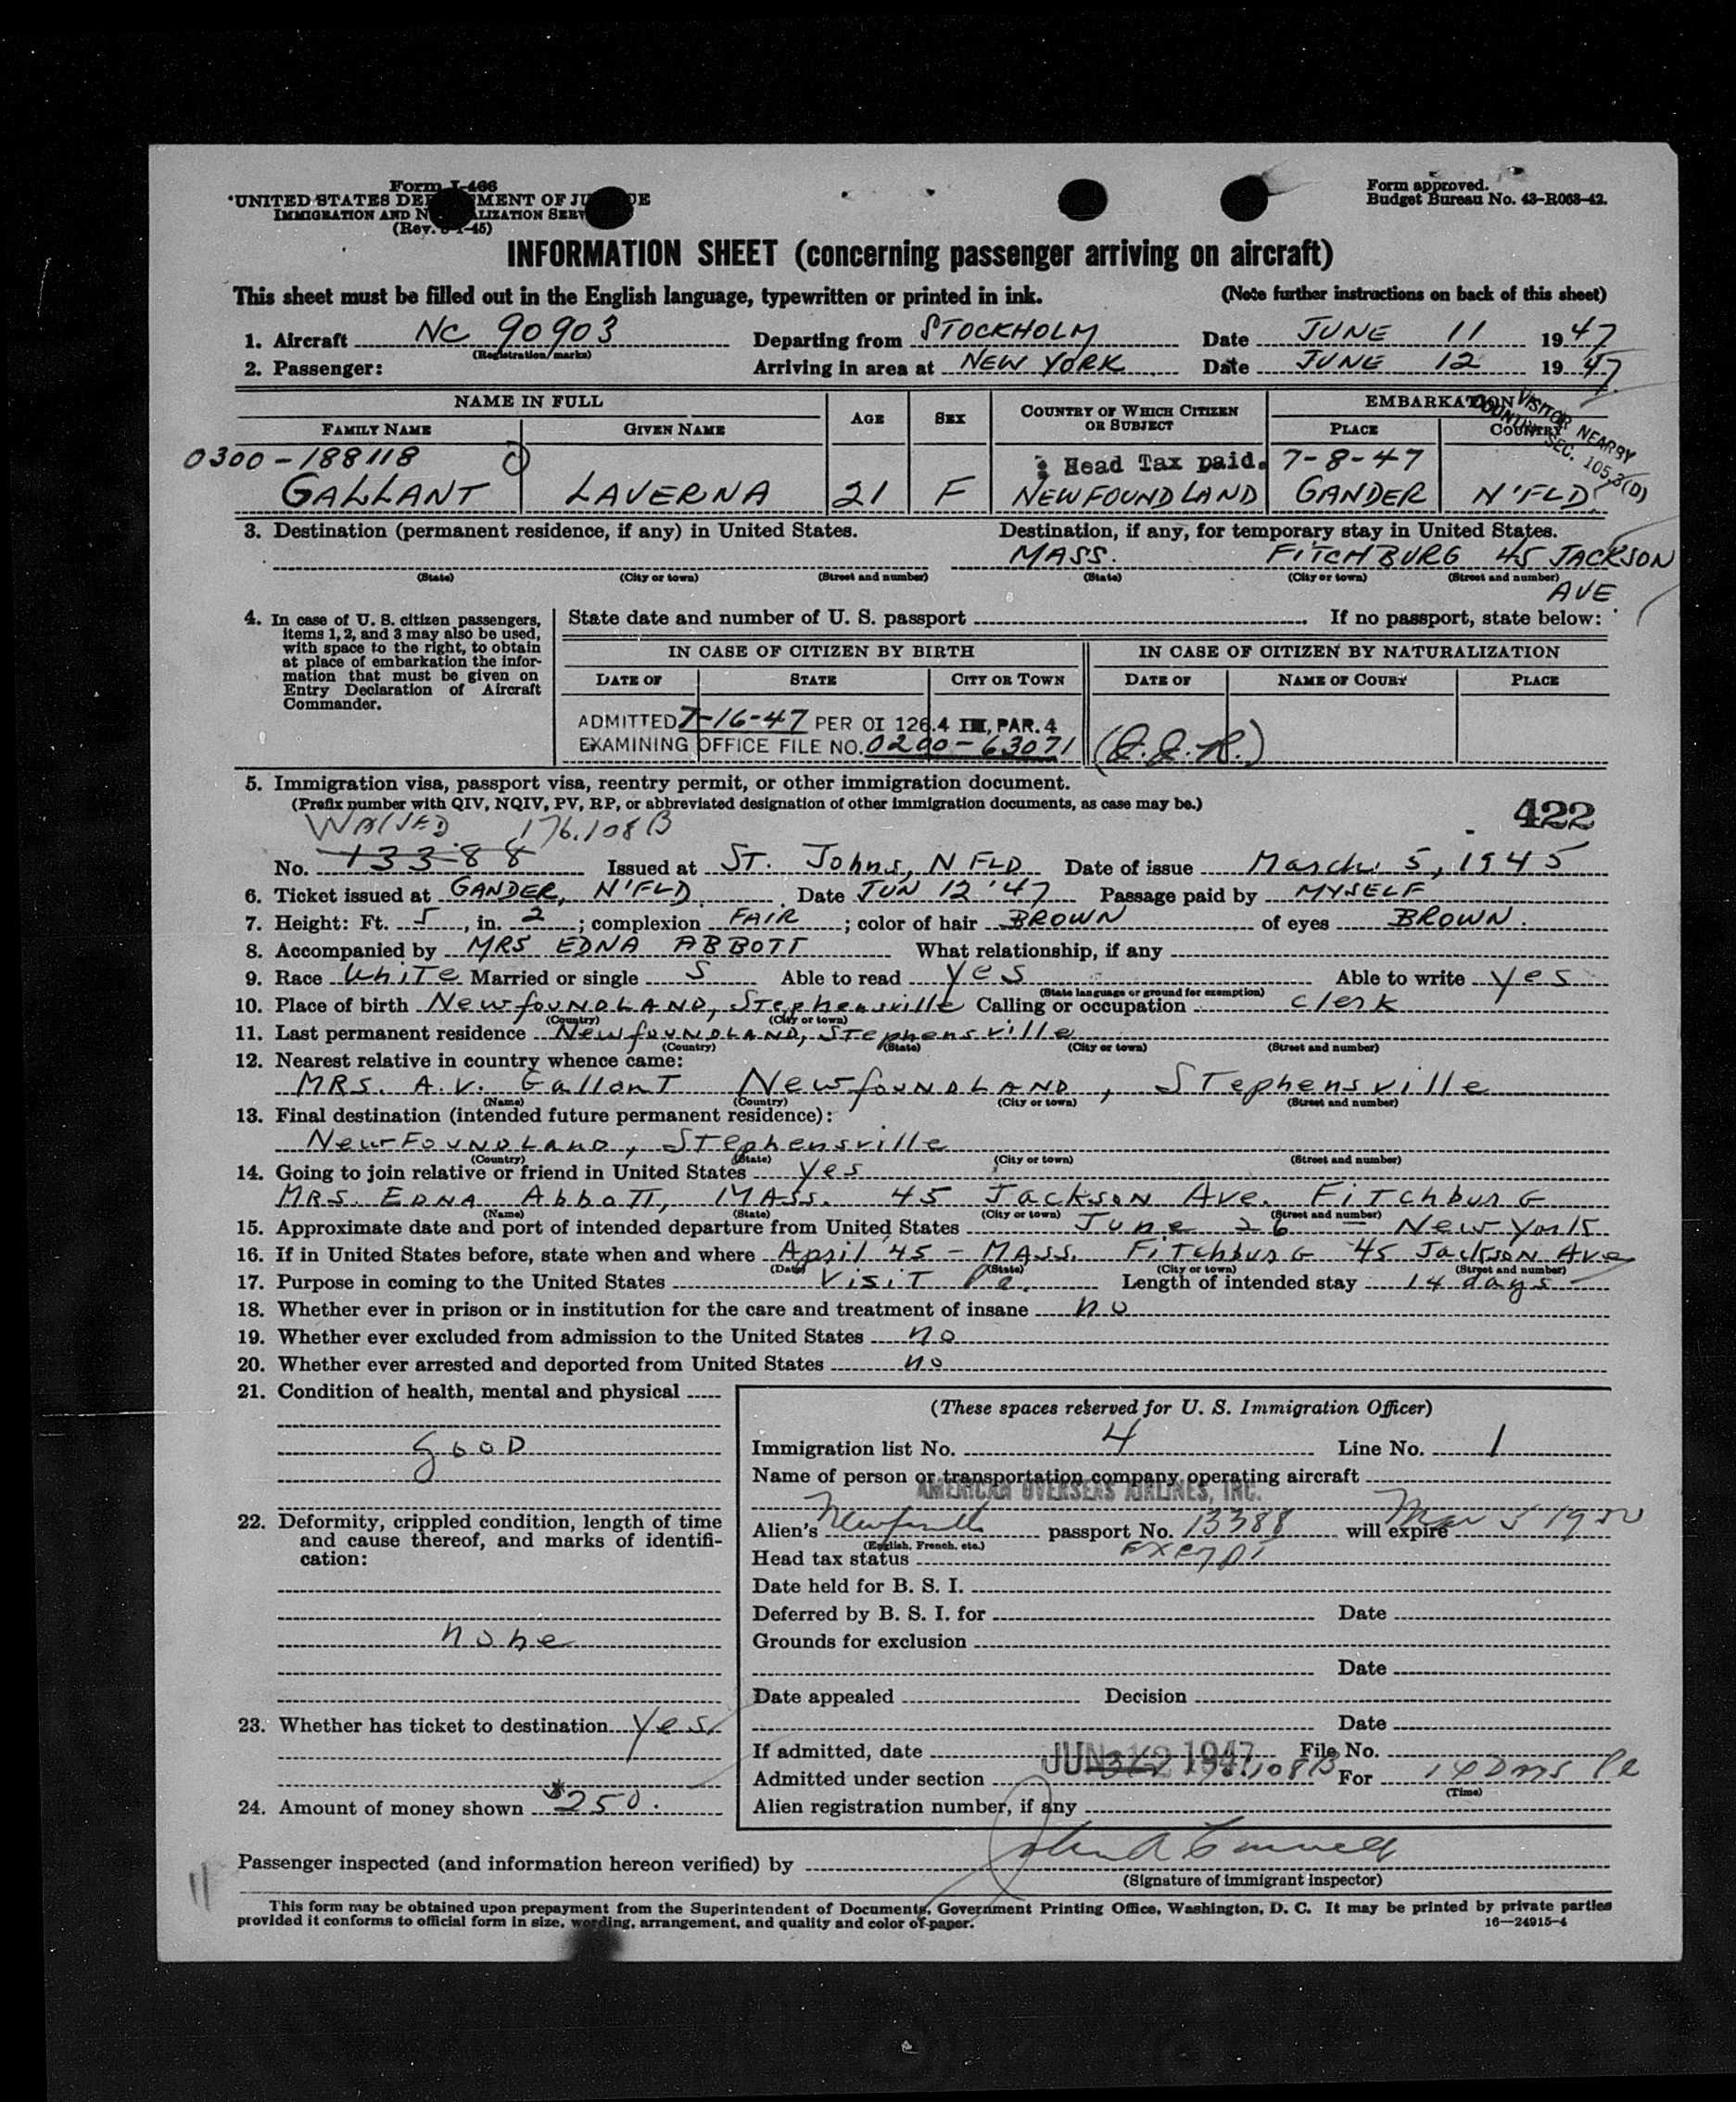 Form I-466
UNITED STATES DEPARTMENT OF JUSTICE
IMMIGRATION AND NATURALIZATION SERVICE
(Rev. -45)
Form approved.
Budget Bureau No. 43-R063-42.
INFORMATION SHEET (concerning passenger arriving on aircraft)
This sheet must be filled out in the English language, typewritten or printed in ink. (Note further instructions on back of this sheet)
1. Aircraft NC 90903 Departing from STOCKHOLM Date JUNE 11 1947
(Registration marks)
2. Passenger: Arriving in area at NEW YORK Date JUNE 12 1947
NAME IN FULL AGE SEX COUNTRY OF WHICH CITIZEN OR SUBJECT EMBARKATION
FAMILY NAME GIVEN NAME PLACE COUNTRY
VISITOR NEARBY
COUNTRY SEC. 105.3(D)
0300-188118 Head Tax paid. 7-8-47
GALLANT LAVERNA 21 F NEWFOUNDLAND GANDER N'FLD.
3. Destination (permanent residence, if any) in United States. Destination, if any, for temporary stay in United States.
MASS. FITCHBURG 45 JACKSON
(State) (City or town) (Street and number) (State) (City or town) (Street and number)
AVE
4. In case of U. S. citizen passengers, items 1, 2, and 3 may also be used, with space to the right, to obtain at place of embarkation the information that must be given on Entry Declaration of Aircraft Commander.
State date and number of U. S. passport If no passport, state below:
IN CASE OF CITIZEN BY BIRTH IN CASE OF CITIZEN BY NATURALIZATION
DATE OF STATE CITY OR TOWN DATE OF NAME OF COURT PLACE
ADMITTED 7-16-47 PER OI 126.4 III, PAR. 4
EXAMINING OFFICE FILE NO. 0200-63071
5. Immigration visa, passport visa, reentry permit, or other immigration document.
(Prefix number with QIV, NQIV, PV, RP, or abbreviated designation of other immigration documents, as case may be.)
422
WAIVED 176.108B
No. 13388 Issued at ST. Johns, NFLD Date of issue March 5, 1945
6. Ticket issued at GANDER, N'FLD. Date JUN 12 '47 Passage paid by MYSELF
7. Height: Ft. 5, in. 2; complexion FAIR; color of hair BROWN of eyes BROWN.
8. Accompanied by MRS EDNA ABBOTT What relationship, if any
9. Race White Married or single S Able to read yes Able to write yes
(State language or ground for exemption)
10. Place of birth NewfoundLAND, Stephensville Calling or occupation clerk
(Country) (City or town)
11. Last permanent residence NewfoundLAND, Stephensville
(Country) (State) (City or town) (Street and number)
12. Nearest relative in country whence came:
MRS. A.V. Gallant NewfoundLAND, Stephensville
(Name) (Country) (City or town) (Street and number)
13. Final destination (intended future permanent residence):
NewFoundLand, Stephensville
(Country) (State) (City or town) (Street and number)
14. Going to join relative or friend in United States yes
MRS. EDNA AbboTT, MASS. 45 Jackson Ave. FiTchburG
(Name) (State) (City or town) (Street and number)
15. Approximate date and port of intended departure from United States June 26 New York
16. If in United States before, state when and where April '45 - MASS. FiTchburG 45 Jackson Ave
(Date) (State) (City or town) (Street and number)
17. Purpose in coming to the United States VisiT Pe. Length of intended stay 14 days
18. Whether ever in prison or in institution for the care and treatment of insane no
19. Whether ever excluded from admission to the United States no
20. Whether ever arrested and deported from United States no
21. Condition of health, mental and physical
gooD
22. Deformity, crippled condition, length of time and cause thereof, and marks of identification:
none
23. Whether has ticket to destination yes.
24. Amount of money shown $250.
(These spaces reserved for U. S. Immigration Officer)
Immigration list No. 4 Line No. 1
Name of person or transportation company operating aircraft
AMERICAN OVERSEAS AIRLINES, INC.
Alien's passport No. 13388 will expire Mar 5 19
(English, French, etc.)
Head tax status exempt
Date held for B. S. I.
Deferred by B. S. I. for Date
Grounds for exclusion
Date
Date appealed Decision
Date
If admitted, date JUN 12 1947 File No.
Admitted under section 3(2) 176.108B For 14 Days Pe
(Time)
Alien registration number, if any
Passenger inspected (and information hereon verified) by
(Signature of immigrant inspector)
11
This form may be obtained upon prepayment from the Superintendent of Documents, Government Printing Office, Washington, D. C. It may be printed by private parties
provided it conforms to official form in size, wording, arrangement, and quality and color of paper. 16—24915-4